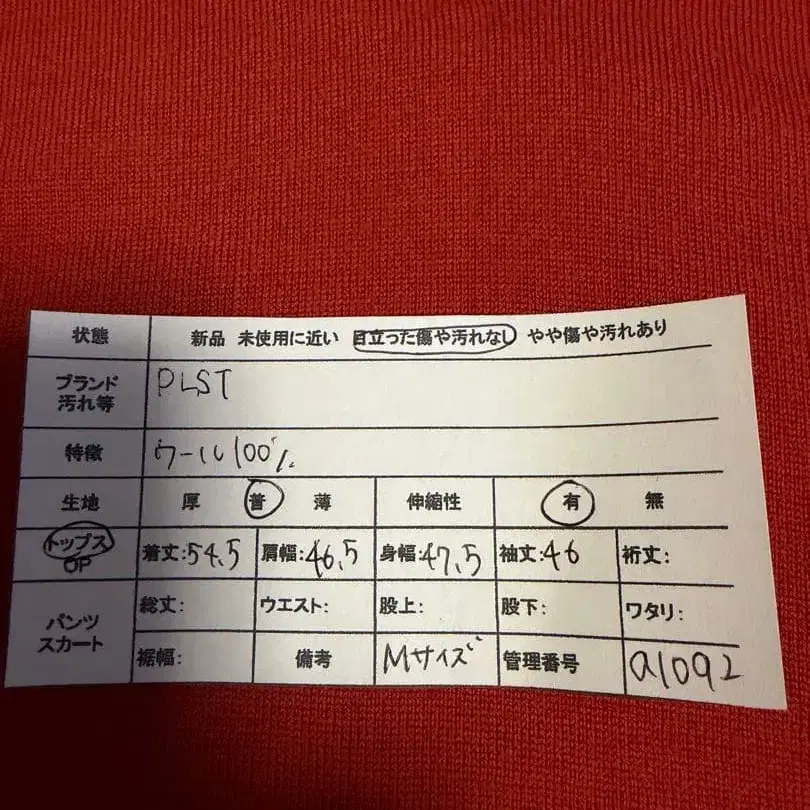 状態 新品 未使用に近い 目立った傷や汚れなし やや傷や汚れあり
ブランド
汚れ等 PLST
特徴 ウール100%
生地 厚 普 薄 伸縮性 有 無
トップス
OP 着丈:54.5 肩幅:46.5 身幅:47.5 袖丈:46 裄丈:
パンツ
スカート 総丈: ウエスト: 股上: 股下: ワタリ:
裾幅: 備考 Mサイズ 管理番号 a1092